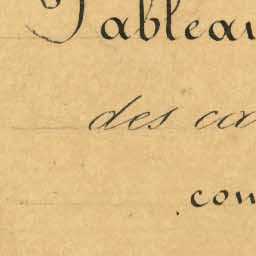 Tableau
des ca
com